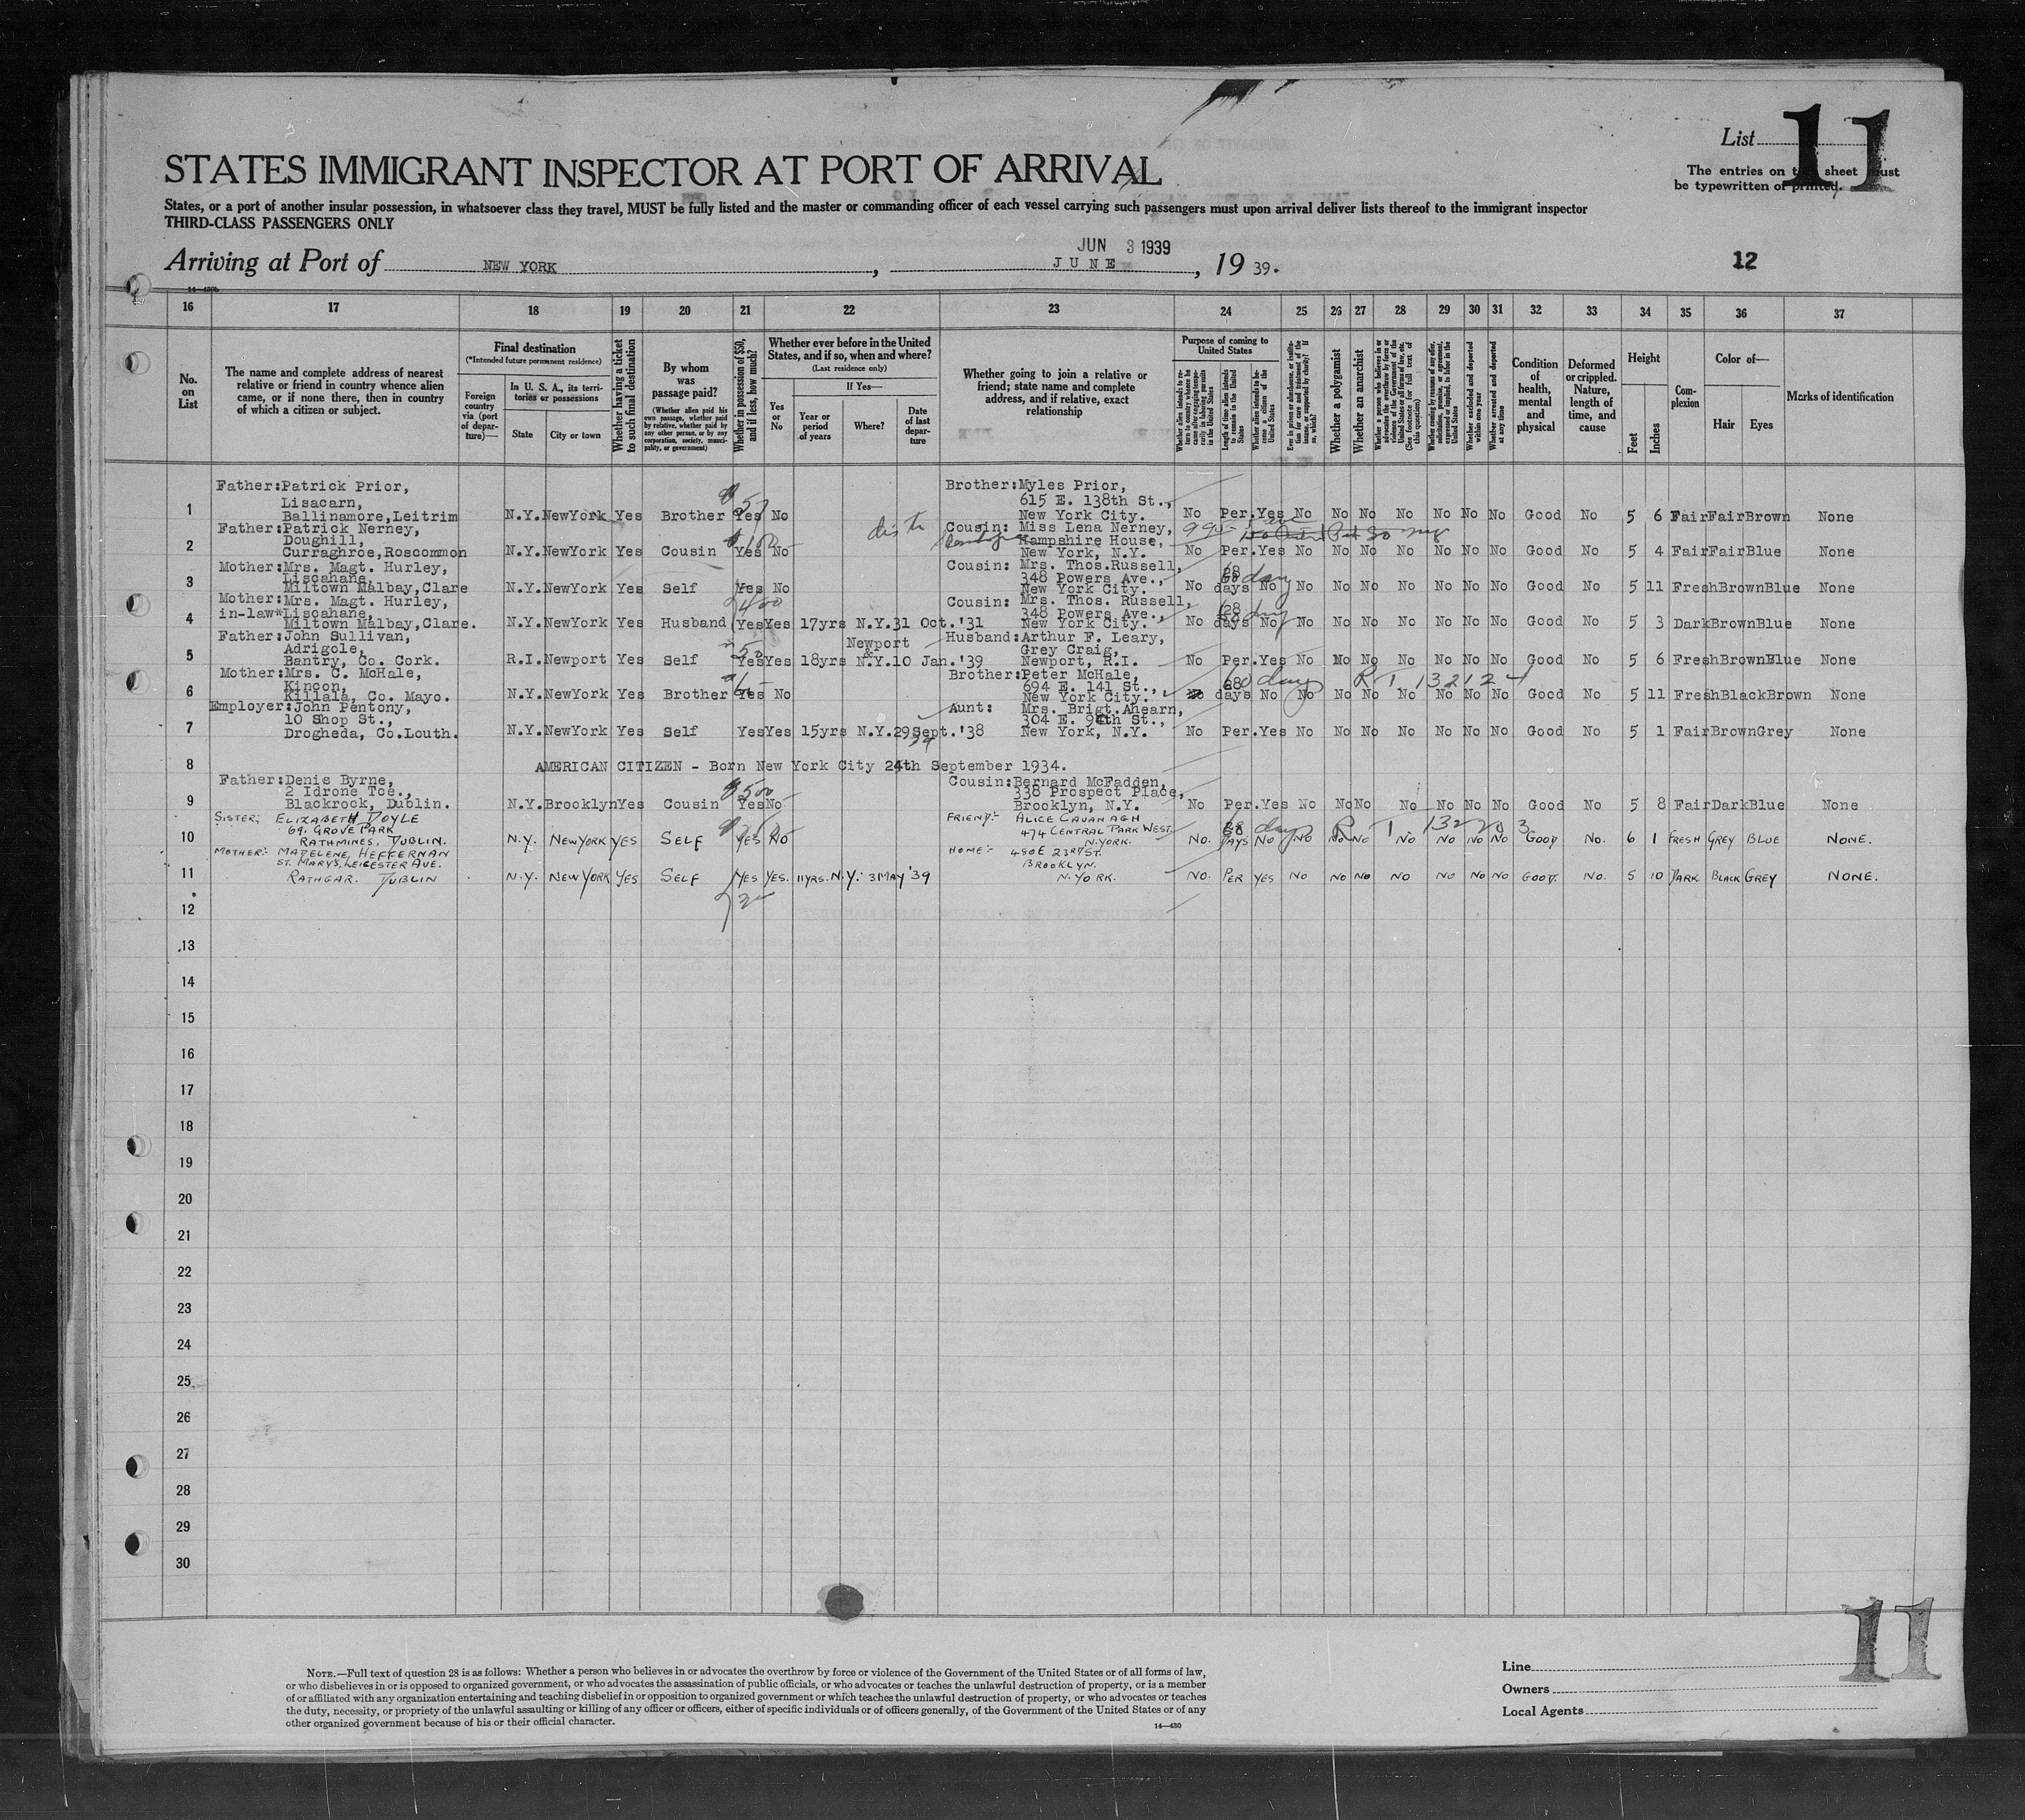 List 11
STATES IMMIGRANT INSPECTOR AT PORT OF ARRIVAL
The entries on this sheet must
be typewritten or printed.
States, or a port of another insular possession, in whatsoever class they travel, MUST be fully listed and the master or commanding officer of each vessel carrying such passengers must upon arrival deliver lists thereof to the immigrant inspector
THIRD-CLASS PASSENGERS ONLY
JUN 3 1939
Arriving at Port of NEW YORK, JUNE, 19 39.
12
14—430b
16 17 18 19 20 21 22 23 24 25 26 27 28 29 30 31 32 33 34 35 36 37
No. on List
The name and complete address of nearest relative or friend in country whence alien came, or if none there, then in country of which a citizen or subject.
Final destination
(*Intended future permanent residence)
Foreign country via (port of departure)—
In U. S. A., its territories or possessions
State
City or town
Whether having a ticket to such final destination
By whom was passage paid?
(Whether alien paid his own passage, whether paid by relative, whether paid by any other person, or by any corporation, society, municipality, or government)
Whether in possession of $50, and if less, how much?
Whether ever before in the United States, and if so, when and where?
(Last residence only)
Yes or No
If Yes—
Year or period of years
Where?
Date of last departure
Whether going to join a relative or friend; state name and complete address, and if relative, exact relationship
Purpose of coming to United States
Whether alien intends to return to country whence he came after engaging temporarily in laboring pursuits in the United States
Length of time alien intends to remain in the United States
Whether alien intends to become a citizen of the United States
Ever in prison or almshouse, or institution for care and treatment of the insane, or supported by charity? If so, which?
Whether a polygamist
Whether an anarchist
Whether a person who believes in or advocates the overthrow by force or violence of the Government of the United States or all forms of law, etc. (See footnote for full text of this question)
Whether coming by reason of any offer, solicitation, promise, or agreement, expressed or implied, to labor in the United States
Whether excluded and deported within one year
Whether arrested and deported at any time
Condition of health, mental and physical
Deformed or crippled. Nature, length of time, and cause
Height
Feet
Inches
Complexion
Color of—
Hair
Eyes
Marks of identification
Father:Patrick Prior, Brother:Myles Prior,
Lisacarn, 615 E. 138th St.,
1 Ballinamore,Leitrim N.Y. NewYork Yes Brother Yes No New York City. No Per. Yes No No No No No No No Good No 5 6 Fair Fair Brown None
Father:Patrick Nerney, Cousin: Miss Lena Nerney,
Doughill, Hampshire House,
2 Curraghroe,Roscommon N.Y. NewYork Yes Cousin Yes No New York, N.Y. No Per. Yes No No No No No No No Good No 5 4 Fair Fair Blue None
Mother:Mrs. Magt. Hurley, Cousin: Mrs. Thos.Russell,
Liscahane, 348 Powers Ave.,
3 Miltown Malbay,Clare N.Y. NewYork Yes Self Yes No New York City. No days No No No No No No No No Good No 5 11 Fresh Brown Blue None
Mother: Mrs. Magt. Hurley, Cousin: Mrs. Thos. Russell,
in-law*Liscahane, 348 Powers Ave.,
4 Miltown Malbay,Clare. N.Y. NewYork Yes Husband Yes Yes 17yrs N.Y. 31 Oct.'31 New York City. No days No No No No No No No No Good No 5 3 Dark Brown Blue None
Father:John Sullivan, Newport Husband:Arthur F. Leary,
Adrigole, & Grey Craig,
5 Bantry, Co. Cork. R.I. Newport Yes Self Yes Yes 18yrs N.Y. 10 Jan.'39 Newport, R.I. No Per. Yes No No No No No No No Good No 5 6 Fresh Brown Blue None
Mother:Mrs. C. McHale, Brother:Peter McHale, 60 days R T 132124
Kincon, 694 E. 141 St.,
6 Killala, Co. Mayo. N.Y. NewYork Yes Brother Yes No New York City. days No No No No No No No No Good No 5 11 Fresh Black Brown None
Employer:John Pentony, Aunt: Mrs. Brigt.Ahearn,
10 Shop St., 304 E. 94th St.,
7 Drogheda, Co.Louth. N.Y. NewYork Yes Self Yes Yes 15yrs N.Y. 29 Sept.'38 New York, N.Y. No Per. Yes No No No No No No No Good No 5 1 Fair Brown Grey None
8 AMERICAN CITIZEN - Born New York City 24th September 1934.
Father:Denis Byrne, Cousin:Bernard McFadden,
2 Idrone Tce., 338 Prospect Place,
9 Blackrock, Dublin. N.Y. Brooklyn Yes Cousin Yes No Brooklyn, N.Y. No Per. Yes No No No No No No No Good No 5 8 Fair Dark Blue None
SISTER; ELIZABETH DOYLE FRIEND:- ALICE CAVANAGH
69. GROVE PARK 474 CENTRAL PARK WEST.
10 RATHMINES, DUBLIN. N.Y. NEW YORK YES SELF YES NO N.YORK. NO. DAYS NO NO NO NO NO NO NO NO GOOD NO. 6 1 FRESH GREY BLUE NONE.
MOTHER:- MADELENE HEFFERNAN HOME:- 480 E 23RD ST.
ST. MARYS, LEICESTER AVE. BROOKLYN.
11 RATHGAR. DUBLIN N.Y. NEW YORK YES SELF YES YES. 11YRS. N.Y. 3 MAY '39 N.YORK. NO. PER YES NO NO NO NO NO NO NO GOOD. NO. 5 10 DARK BLACK GREY NONE.
12
13
14
15
16
17
18
19
20
21
22
23
24
25
26
27
28
29
30
11
NOTE.—Full text of question 28 is as follows: Whether a person who believes in or advocates the overthrow by force or violence of the Government of the United States or of all forms of law,
or who disbelieves in or is opposed to organized government, or who advocates the assassination of public officials, or who advocates or teaches the unlawful destruction of property, or is a member
of or affiliated with any organization entertaining and teaching disbelief in or opposition to organized government or which teaches the unlawful destruction of property, or who advocates or teaches
the duty, necessity, or propriety of the unlawful assaulting or killing of any officer or officers, either of specific individuals or of officers generally, of the Government of the United States or of any
other organized government because of his or their official character.
14—430
Line
Owners
Local Agents